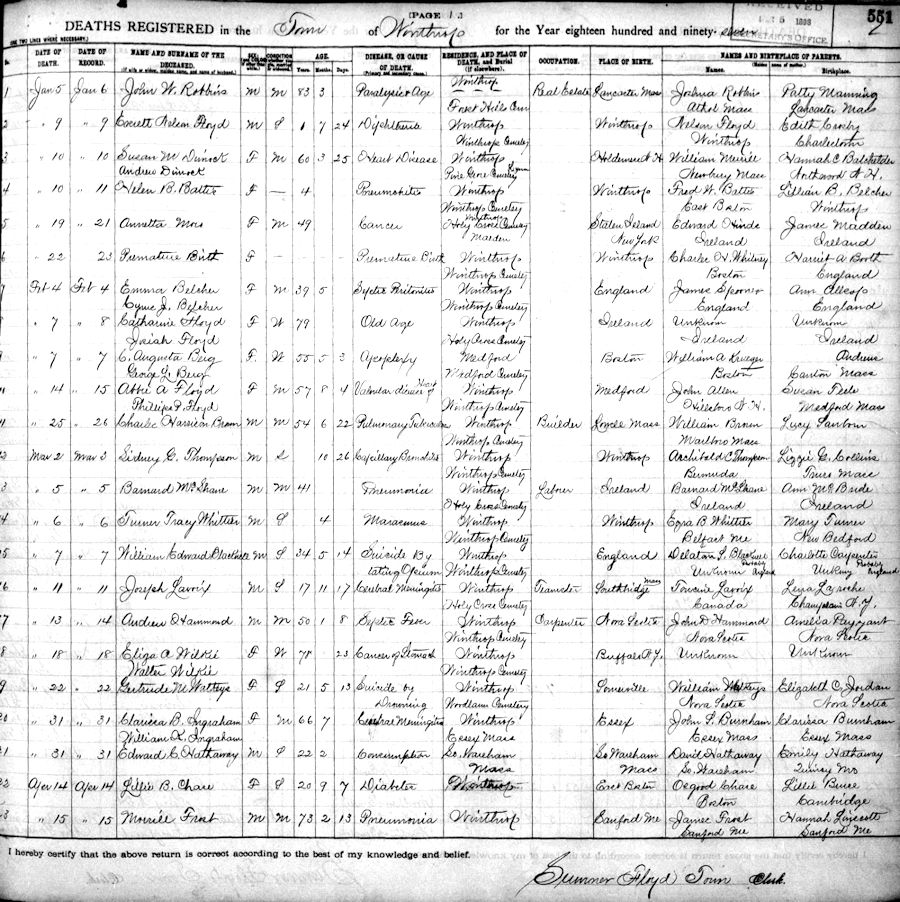 [PAGE 1.]
551
2
RECEIVED
5 1898
SECRETARY'S OFFICE.
DEATHS REGISTERED in the Town of Winthrop for the Year eighteen hundred and ninety-
(USE TWO LINES WHERE NECESSARY.)
DATE OF DEATH. DATE OF RECORD. NAME AND SURNAME OF THE DECEASED. AGE. Years Months Days DISEASE, OR CAUSE OF DEATH. RESIDENCE, AND PLACE OF DEATH, and Burial (if elsewhere). OCCUPATION. PLACE OF BIRTH. NAMES AND BIRTHPLACE OF PARENTS. Names. Birthplace.
1 Jan 5 Jan 6 John W. Robbins M M 83 3 Paralysis Age Winthrop Real Estate Lancaster Mass Joshua Robbins Patty Manning
Forest Hills Athol Mass Lancaster Mass
2 " 9 " 9 Everett Nelson Floyd M S 1 7 24 Diphtheria Winthrop Winthrop Nelson Floyd Edith Crosby
Winthrop Cemetery Winthrop Charlestown
3 " 10 " 10 Susan M Dimock F M 60 3 25 Heart Disease Winthrop Holderness N.H William Hannah C Batchelder
Andrew Dimock Pine Grove Cemetery Newbury Mass Northwood N.H.
4 " 10 " 11 Helen B. Battis F — 4 Winthrop Winthrop Fred W. Battis Lillian B. Belcher
Winthrop Cemetery East Boston Winthrop
5 " 19 " 21 Annetta F M 49 Cancer Winthrop Staten Island Edward Hinds Madden
Holy Cross Cemetery Malden New York Ireland Ireland
6 " 22 23 Premature Birth F — Premature Birth Winthrop Winthrop Charles H. Whitney Harriet A Booth
Winthrop Cemetery Boston England
7 Feb 4 Feb 4 Emma Belcher F M 39 5 Septic Peritonitis Winthrop England James Spooner Ann Allsop
Cyrus J. Belcher Winthrop Cemetery England England
8 " 7 " 8 Catharine Floyd F W 79 Old Age Winthrop Ireland Unknown Unknown
Josiah Floyd Holy Cross Cemetery Ireland Ireland
9 " 7 " 7 C. Augusta Berg F. W 55 5 3 Apoplexy Medford Boston William A Andrews
George L. Berg Medford Cemetery Boston Canton Mass
" 14 " 15 Abbie A Floyd F M 57 8 4 Valvular disease of Heart Winthrop Medford John Allen Susan Teele
Phillips P. Floyd Winthrop Cemetery Hillsboro N.H. Medford Mass
11 " 25 " 26 Charles Harrison Brown M M 54 6 22 Pulmonary Tuberculosis Winthrop Builder Lowell Mass William Brown Lucy Sanborn
Winthrop Cemetery Marlboro Mass
12 Mar 2 Mar 3 Sidney C. Thompson M S 10 26 Capillary Bronchitis Winthrop Winthrop Archibald C Thompson Lizzie G. Collins
Winthrop Cemetery Bermuda Truro Mass
13 " 5 " 5 Barnard McShane M M 41 Pneumonia Winthrop Laborer Ireland Barnard McShane Ann McBride
Holy Cross Cemetery Ireland Ireland
14 " 6 " 6 Turner Tracy Whittier M S 4 Marasmus Winthrop Winthrop Ezra B Whittier Mary Turner
Winthrop Cemetery Belfast Me New Bedford
15 " 7 " 7 William Edward M S 34 5 14 Suicide By Winthrop England Charlotte Carpenter
taking Opium Winthrop Cemetery Unknown Probably England Probably England
16 " 11 " 11 Joseph Lavoix M S 17 11 17 Cerebral Meningitis Winthrop Teamster Southbridge Mass Lavoix Lena
Holy Cross Cemetery Canada Champlain N.Y.
17 " 13 " 14 Andrew D Hammond M M 50 1 8 Septic Fever Winthrop Carpenter Nova Scotia John D Hammond Amelia Payzant
Winthrop Cemetery Nova Scotia Nova Scotia
18 " 18 " 18 Eliza A Wilkie F W 78 23 Cancer of Stomach Winthrop Buffalo N.Y. Unknown Unknown
Walter Wilkie Winthrop Cemetery
19 " 22 " 22 Gertrude M F S 21 5 13 Suicide by Winthrop Somerville William Elizabeth C. Jordan
Drowning Woodlawn Cemetery Nova Scotia Nova Scotia
20 " 31 " 31 Clarissa B. Ingraham F M 66 7 Cerebral Meningitis Winthrop Essex John F. Burnham Clarissa Burnham
William L. Ingraham Essex Mass Essex Mass Essex Mass
21 " 31 " 31 Edward C. Hathaway M S 22 2 Consumption So. Wareham So Wareham David Hathaway Emily Hathaway
Mass Mass So. Wareham Quincy Ms
22 Apr 14 Apr 14 Lillie B. Chase F S 20 9 7 Diabetes Winthrop East Boston Osgood Chase Lillie
Boston Cambridge
23 " 15 " 15 Morrill Frost M M 73 2 13 Pneumonia Winthrop Sanford Me James Frost Hannah Linscott
Sanford Me Sanford Me
I hereby certify that the above return is correct according to the best of my knowledge and belief.
Sumner Floyd Town Clerk.